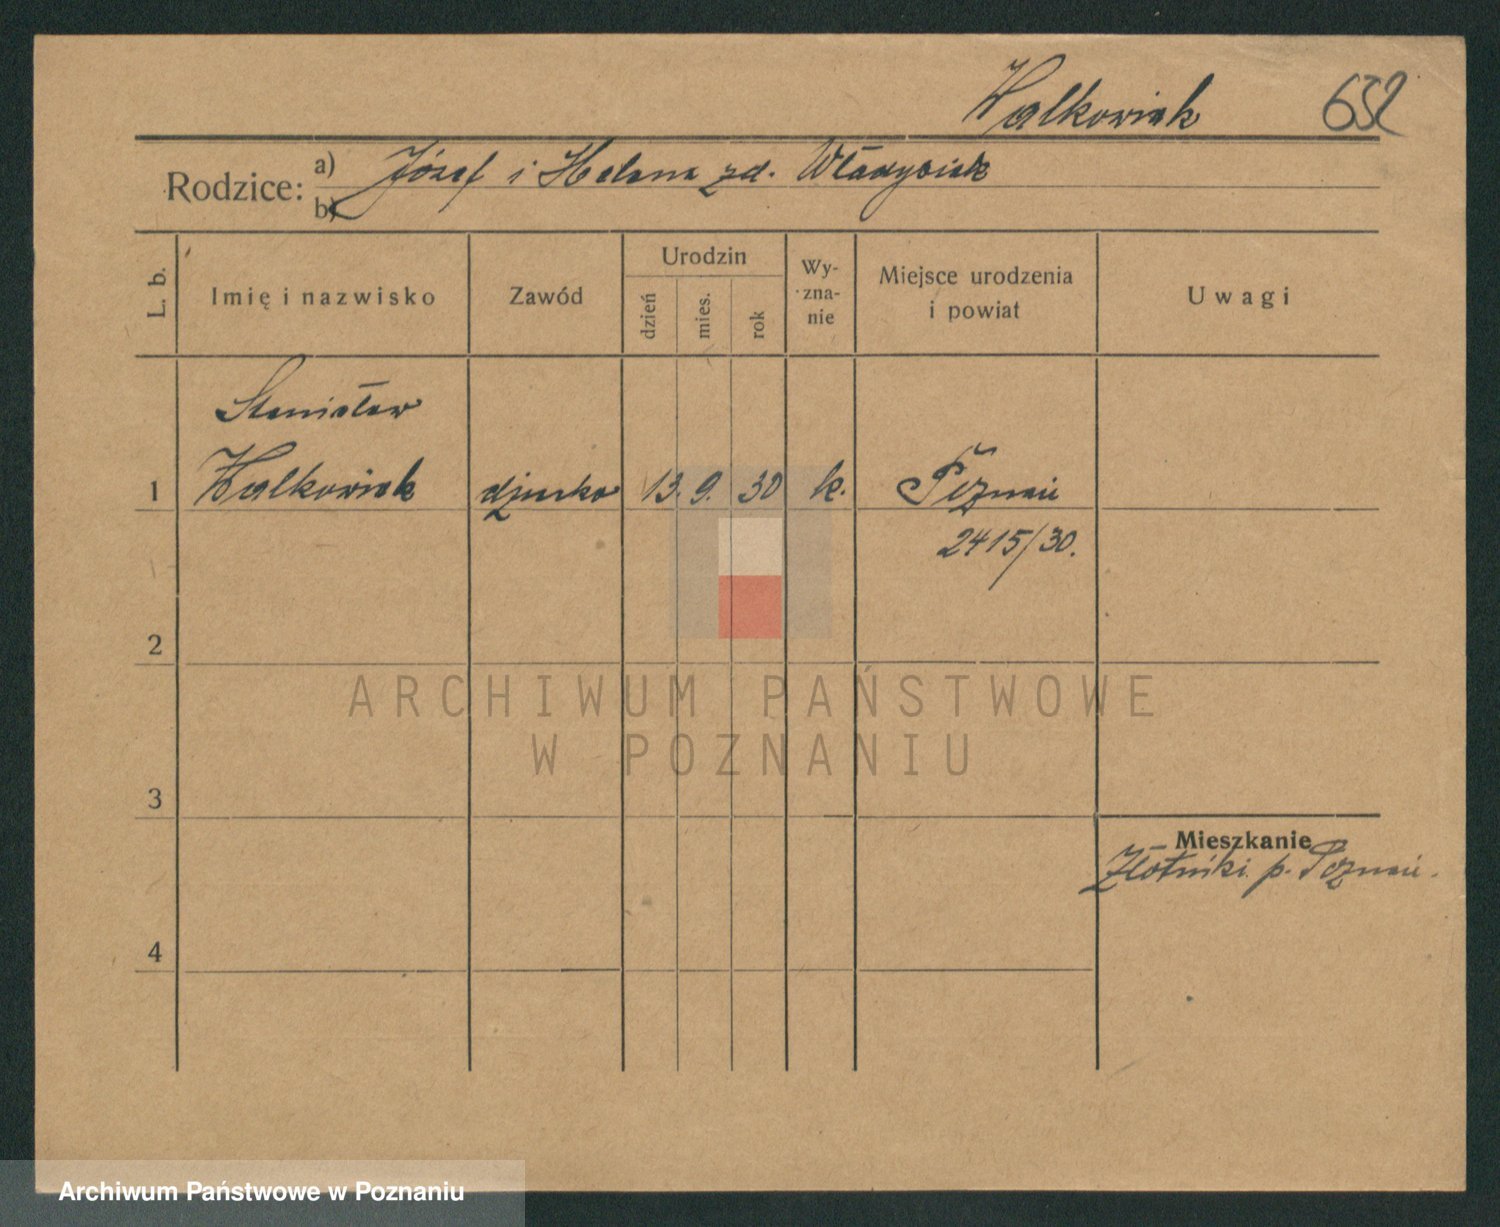 Walkowiak 632
Rodzice: a) Józef i Helena zd. Władysiak
b)
L. b. Imię i nazwisko Zawód Urodzin dzień mies. rok Wy-zna-nie Miejsce urodzenia i powiat Uwagi
Stanisław
1 Walkowiak dziecko 13. 9. 30 k. Poznań
2415/30.
2
ARCHIWUM PAŃSTWOWE
W POZNANIU
3
Mieszkanie
Złotniki p. Poznań.
4
Archiwum Państwowe w Poznaniu